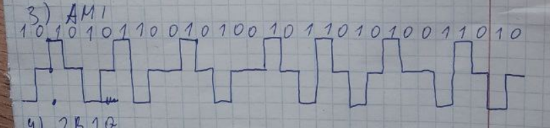 3) AMI
1 0 1 0 1 0 1 1 0 0 1 0 0 0 1 0 1 0 1 0 1 0 1 0 0 1 1 0 1 0
4) 2B1Q